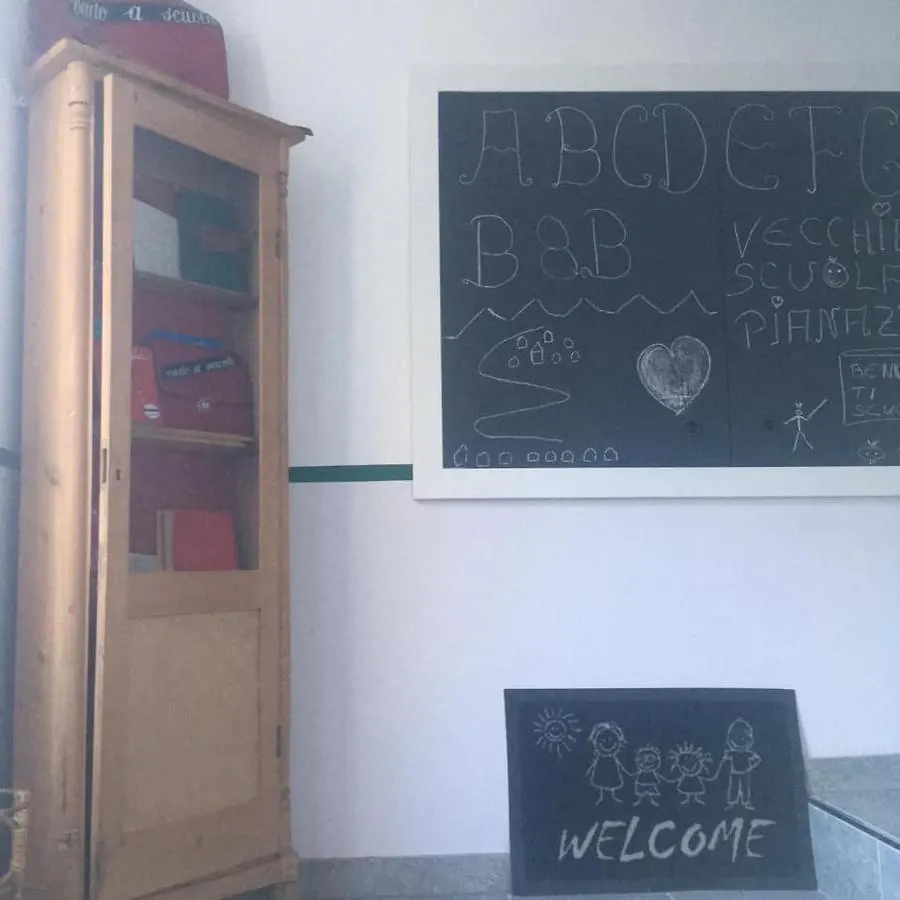 vado a scuola
vado a scuola
ABCDEFG
B&B
VECCHI
SCUOLA
PIANAZ
BENV
TI
SCUO
WELCOME